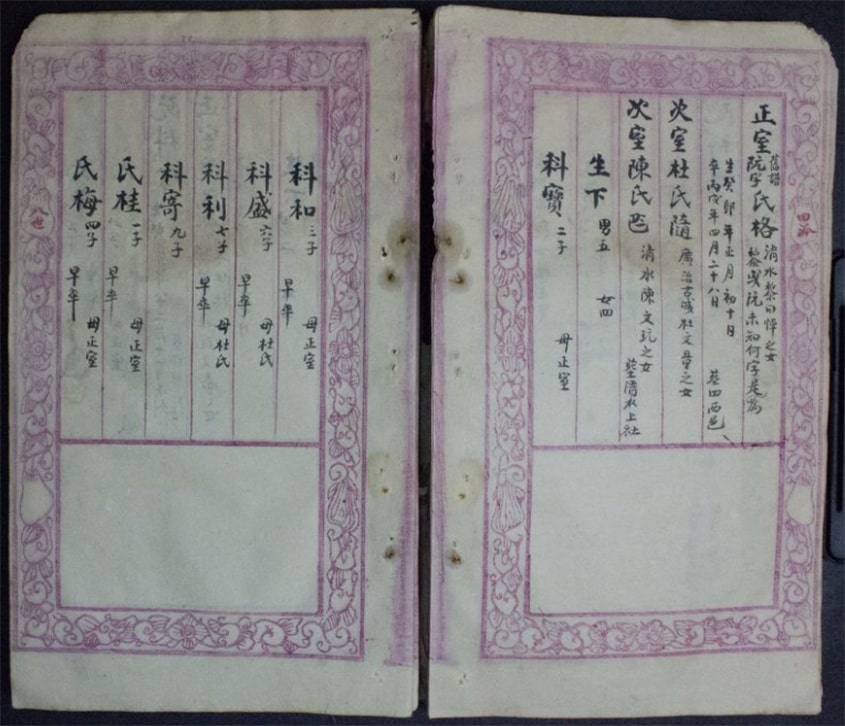 正室阮字氏格 舊譜 清水黎曰悼之女
黎或阮未知何字是焉
生癸卯年正月初十日
卒丙戌年四月二十八日 墓四西邑
次室杜氏隨 廣治 杜文量之女
次室陳氏 清水陳文玩之女 葬清水上社
生下 男五 女四
科寶 二子 母正室
科和 三子 早卒 母正室
科盛 六子 早卒 母杜氏
科利 七子 早卒 母杜氏
科寄 九子
氏桂 一子 早卒 母正室
氏梅 四子 早卒 母正室
八世